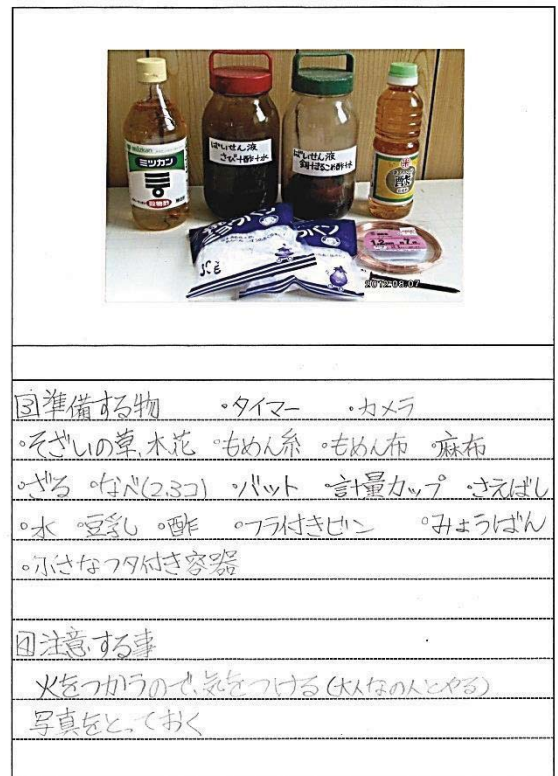 mizkan
ミツカン
穀物酢
ばいせん液
さび+酢+水
ばいせん液
銅+まるこめ酢+水
酢
ミョウバン
1.2mm 約7m
2012.08.07
③準備する物 ・タイマー ・カメラ
・そざいの草、木花 ・もめん糸 ・もめん布 ・麻布
・ざる ・なべ(2,3コ) ・バット ・計量カップ ・さえばし
・水 ・豆乳 ・酢 ・フラ付きビン ・みょうばん
・小さなフタ付き容器
④注意する事
火をつかうので、気をつける(大人なの人とやる)
写真をとっておく